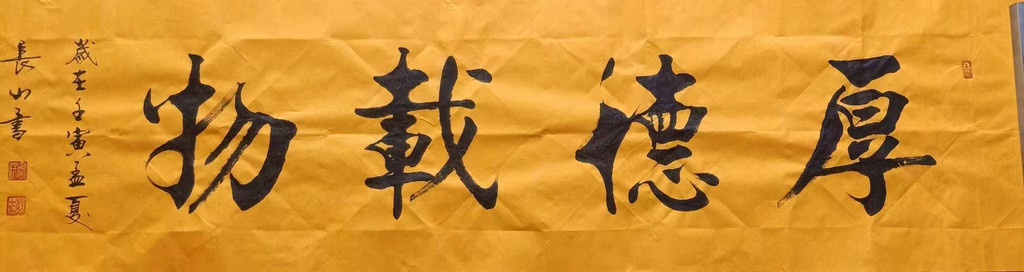 厚德載物
歲在壬寅孟夏
長山書